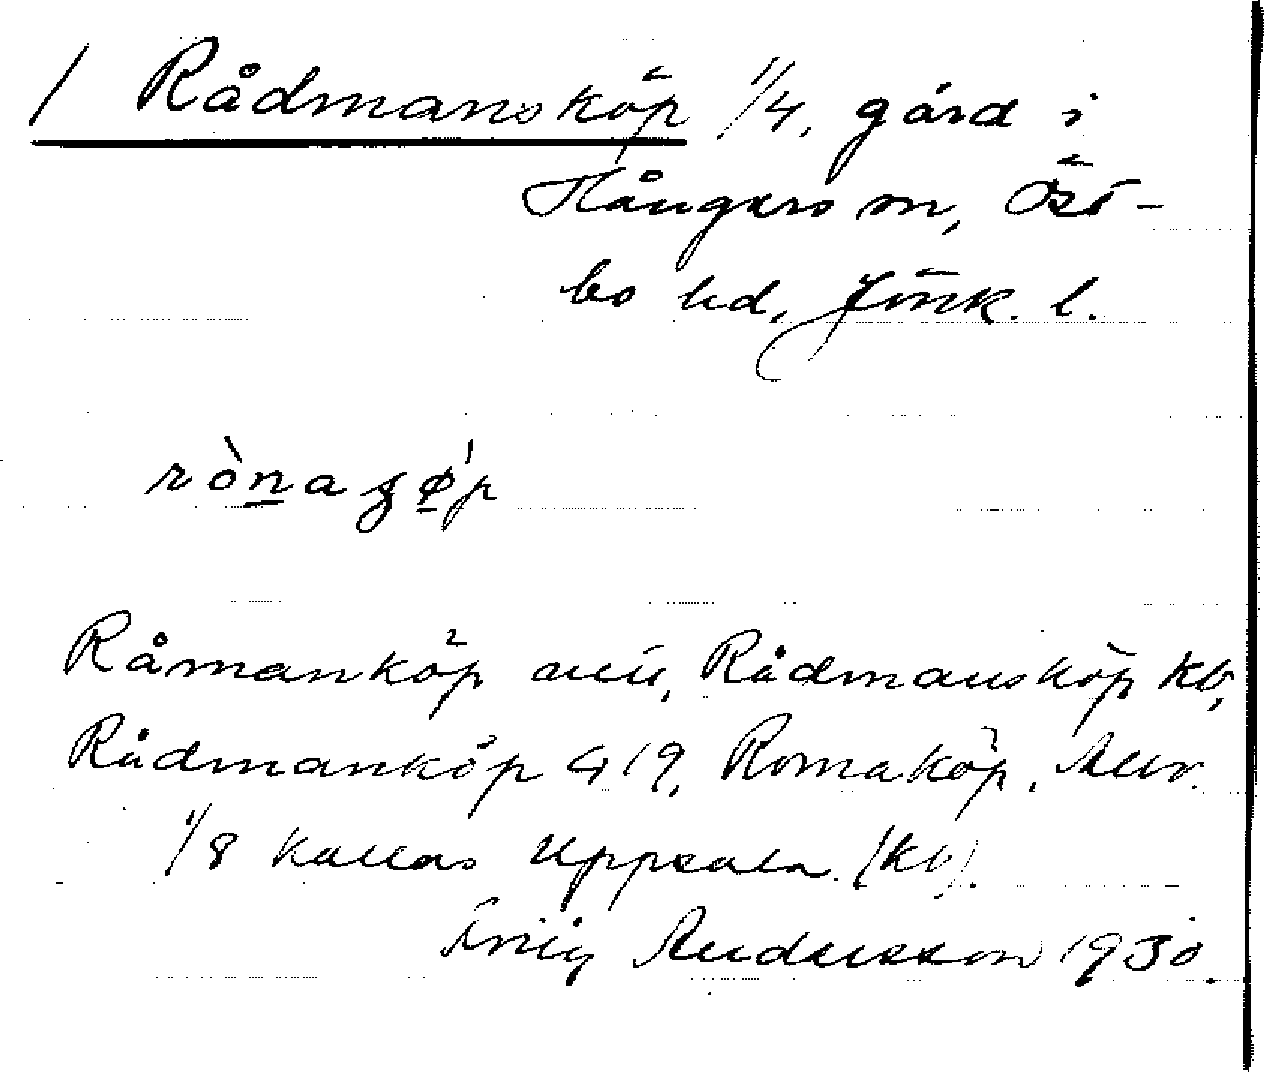 / Rådmansköp 1/4, gård i
Hångers sn, Öst-
bo hd, Jönk. l.
rònaʒø̀p
Råmanköp allm., Rådmansköp kb,
Rådmanköp 419, Romaköp,
1/8 kallas Uppsala (kb).
Andersson 1930.